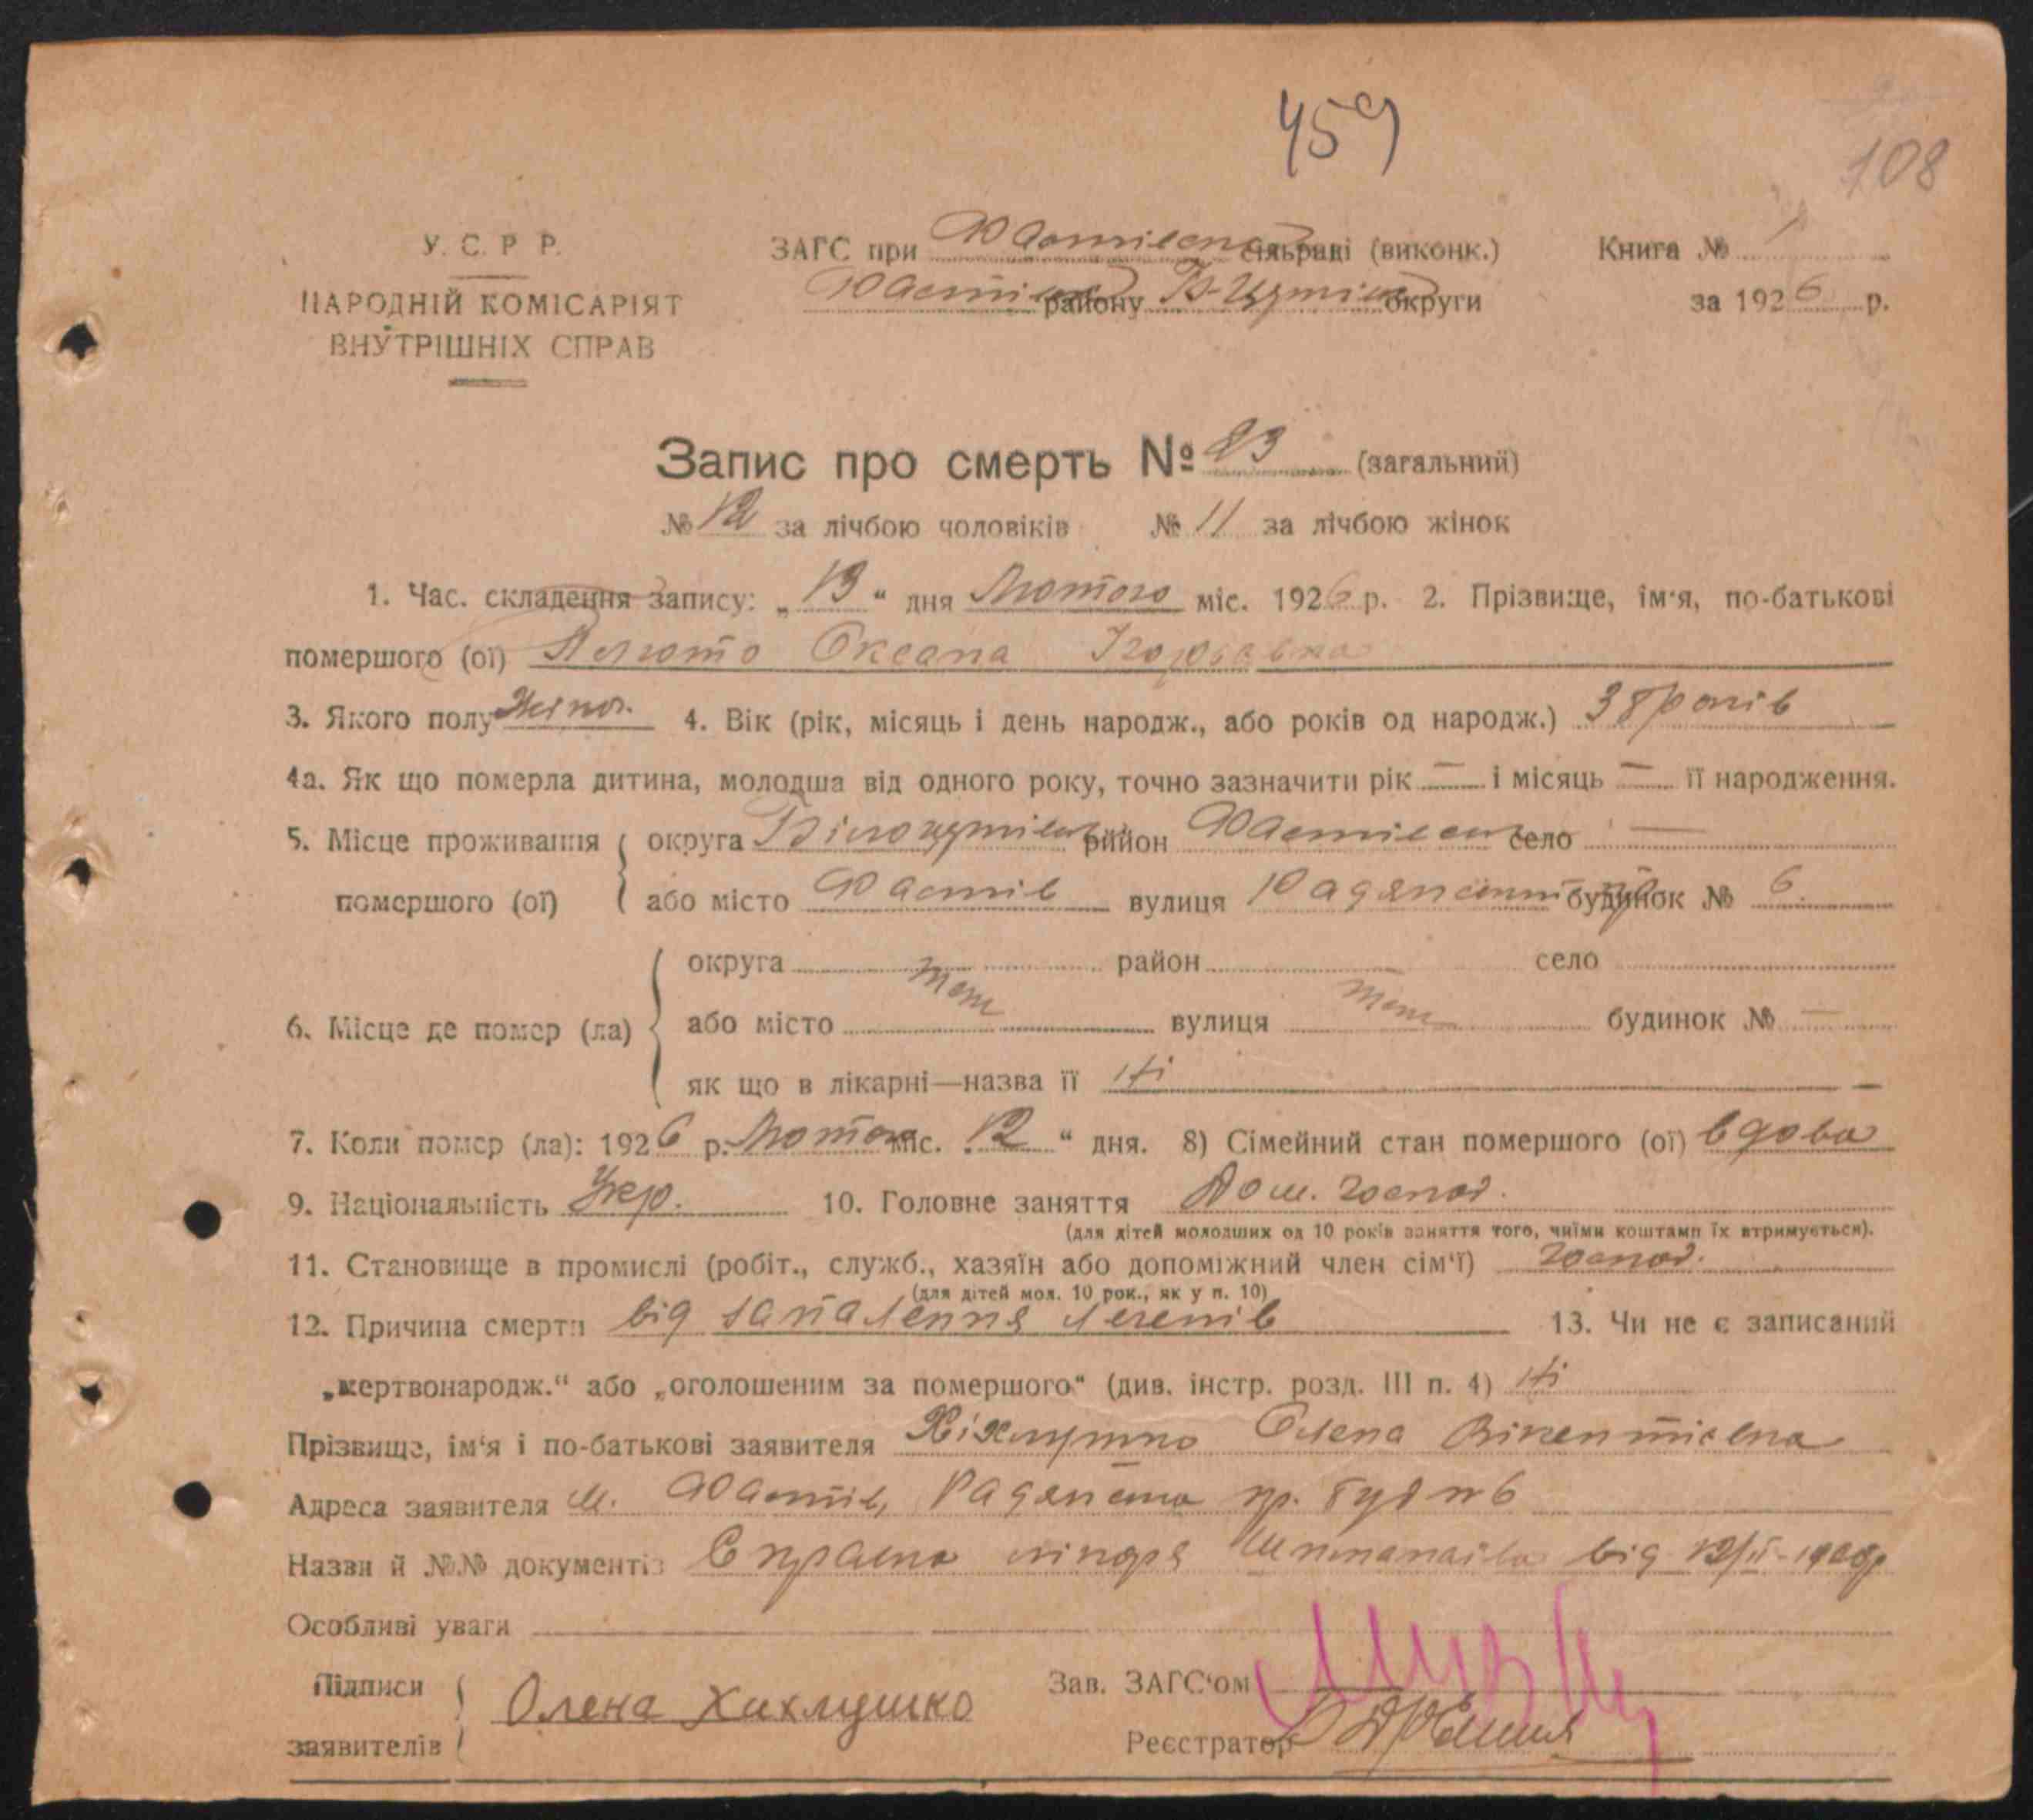 459
108
У. С. Р Р. ЗАГС при Фастівськ сільраді (виконк.) Книга № 1
НАРОДНІЙ КОМІСАРІЯТ Фастівськ району Б-Церківс округи за 1926 р.
ВНУТРІШНІХ СПРАВ
Запис про смерть № 23 (загальний)
№ 12 за лічбою чоловіків № 11 за лічбою жінок
1. Час. складення запису: „13“ дня Лютого міс. 1926 р. 2. Прізвище, ім'я, по-батькові
помершого (ої) Оксана
3. Якого полу Жіноч. 4. Вік (рік, місяць і день народж., або років од народж.) 38 років
4а. Як що померла дитина, молодша від одного року, точно зазначити рік — і місяць — її народження.
5. Місце проживання округа Білоцерківськ район Фастівськ село —
помершого (ої) або місто Фастів вулиця Радянський будинок № 6
округа район село
6. Місце де помер (ла) або місто теж вулиця теж будинок № —
як що в лікарні—назва її Ні —
7. Коли помер (ла): 1926 р. Лютого міс. „12“ дня. 8) Сімейний стан помершого (ої) вдова
9. Національність Укр. 10. Головне заняття Дом. господ.
(для дітей молодших од 10 років заняття того, чиїми коштами їх втримується).
11. Становище в промислі (робіт., служб., хазяїн або допоміжний член сім'ї) господ.
(для дітей мол. 10 рок., як у п. 10)
12. Причина смерти від запалення легенів 13. Чи не є записаний
„мертвонародж.“ або „оголошеним за помершого“ (див. інстр. розд. III п. 4) Ні
Прізвище, ім'я і по-батькові заявителя Хіхлушко Олена Вікентієвна
Адреса заявителя м. Фастів, Радянська пр. буд № 6
Назви й №№ документів лікаря від 12/II-1926р
Особливі уваги
Підписи Олена Хихлушко Зав. ЗАГС'ом
заявителів Реєстратор